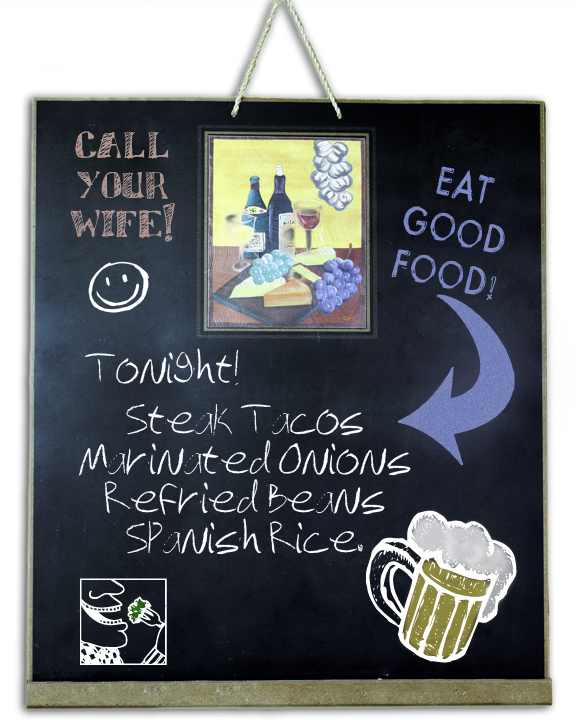 CALL
YOUR
WIFE!
EAT
GOOD
FOOD!
Tonight!
Steak Tacos
Marinated Onions
Refried Beans
Spanish Rice.